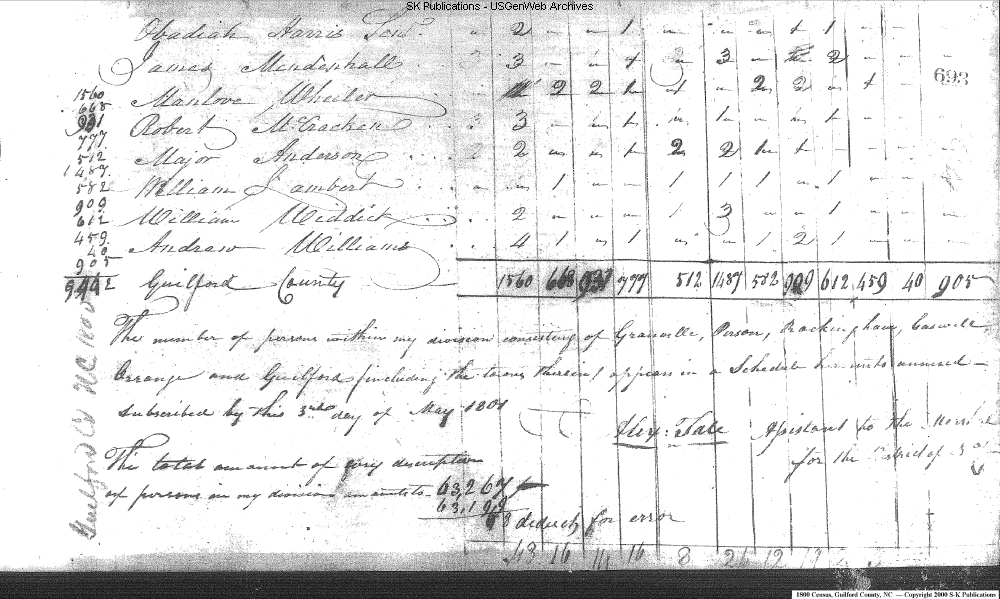 SK Publications - USGenWeb Archives
Obadiah Harris Senr. 2 1 1
James Mendenhall 3 3 2
693
Manlove Wheeler 2 2 2 2
Robert McCracken 3 1
Major Anderson 2 2 2
William Lambert 1 1 1 1 1
William Widdick 2 1 3 1
Andrew Williams 4 1 1 1 2 1
1560
668
931
777
512
1487
582
909
612
459
40
905
9442
Guilford County 1560 668 931 777 512 1487 582 909 612 459 40 905
The number of persons within my division consisting of Granville, Person, Rockingham, Caswell
Orrange and Guilford (including the towns therein) appears in a Schedule hereunto annexed
Subscribed by this 3rd day of May 1801
Alex: Tate Assistant to the
for the District of
The total amount of every description
of persons in my division amounts to 63,267
63,199
68 deduct for error
48 16 14 16 8 26 12
Guilford Co NC 1800
1800 Census, Guilford County, NC — Copyright 2000 S-K Publications